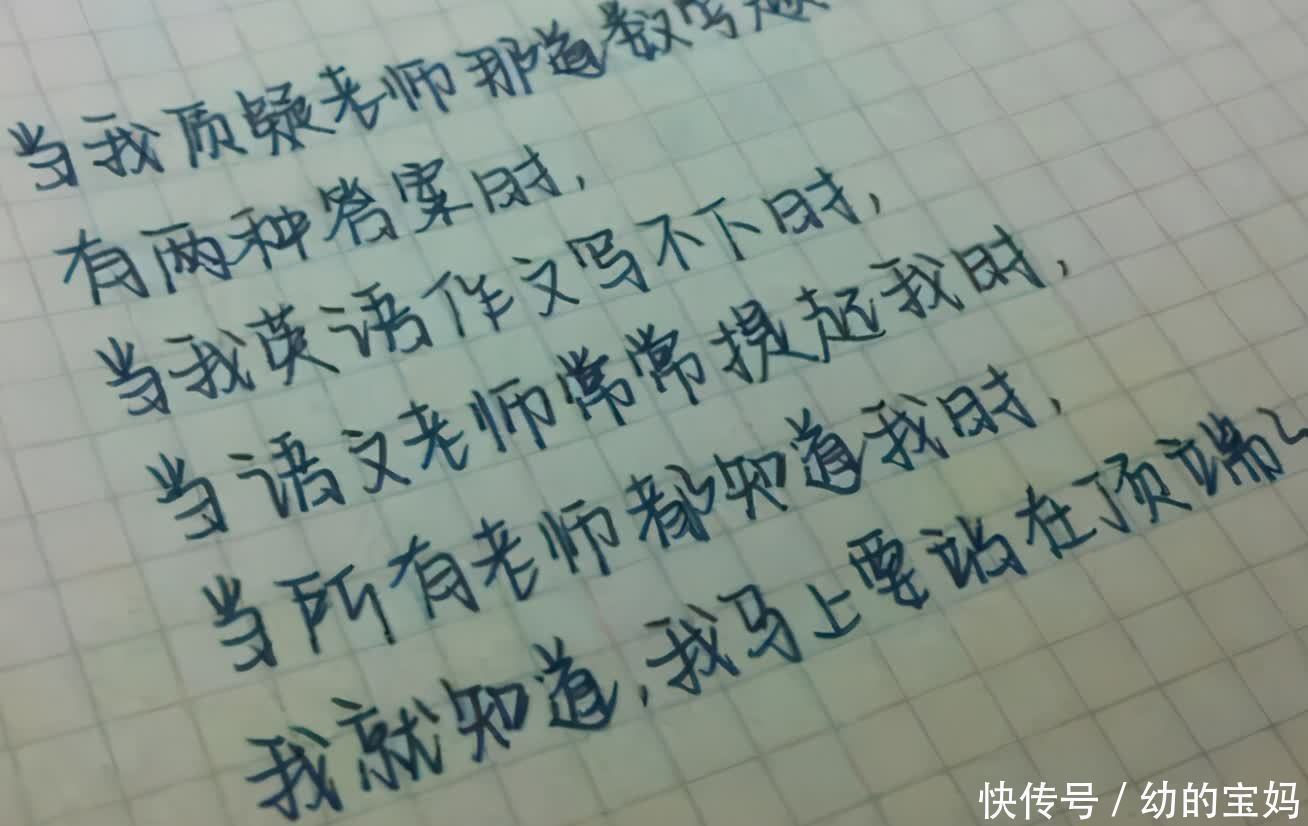 当我质疑老师那道数学题
有两种答案时，
当我英语作文写不下时，
当语文老师常常提起我时，
当所有老师都知道我时，
我就知道，我马上要站在顶端
快传号 / 幼的宝妈